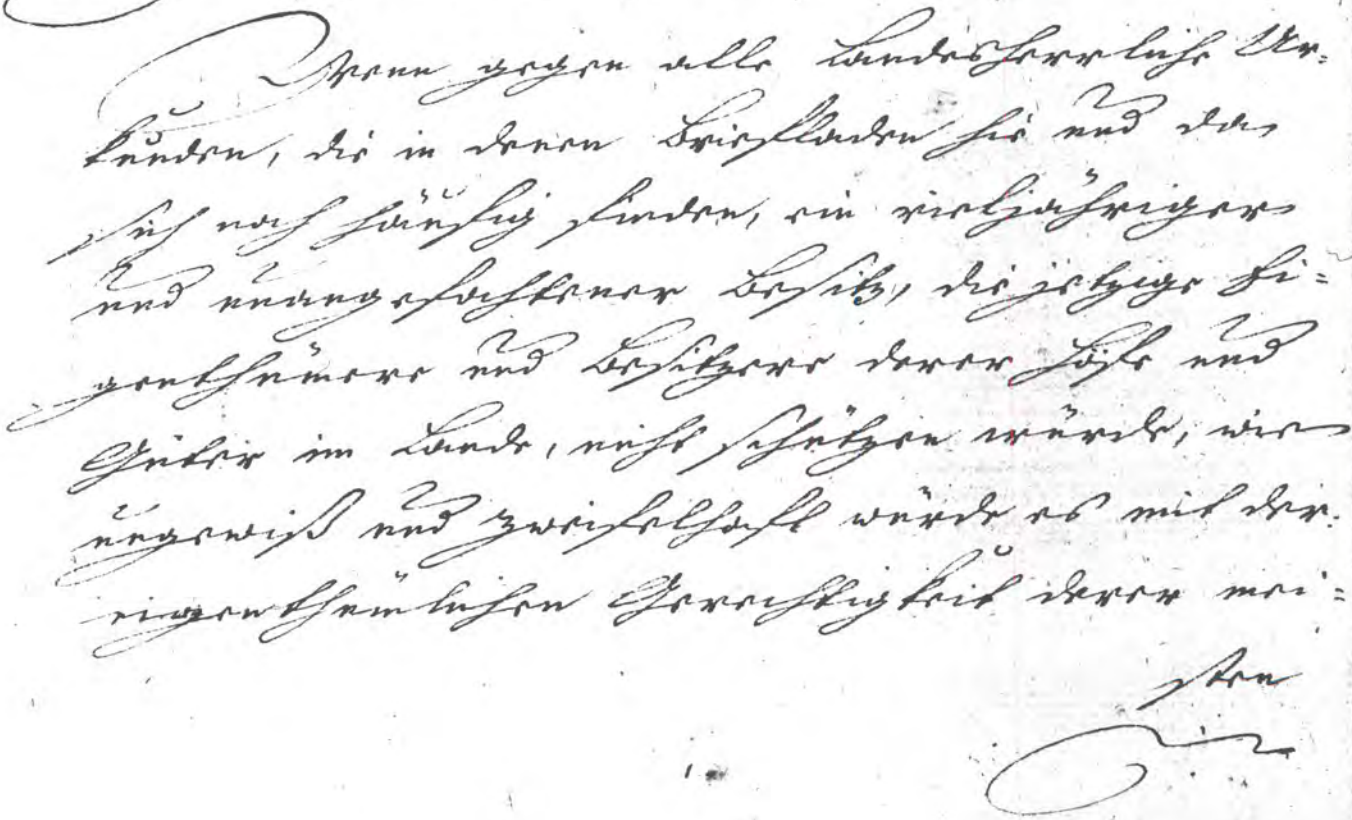 Wenn gegen alle Landesherrliche Ur=
kunden, die in denen Briefladen hie und da
sich noch häufig finden, ein vieljähriger
und unangefochtener Besitz, die jetzige Ei=
genthümere und Besitzere derer Höfe und
Güter im Lande, nicht schützen würde, wie
ungewiß und zweifelhaft würde es mit der
eigenthümlichen Gerechtigkeit derer mei=
sten